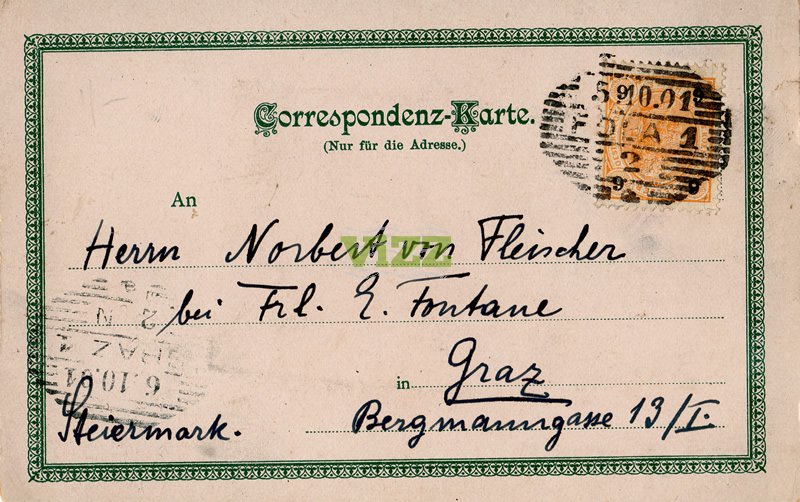 Correspondenz-Karte.
(Nur für die Adresse.)
9 9
10.01
1
2
9 9
An
Herrn Norbert von Fleischer
VIZZ
bei Frl. E. Fontane
in Graz
Bergmanngasse 13/I.
Steiermark.
6.10.01